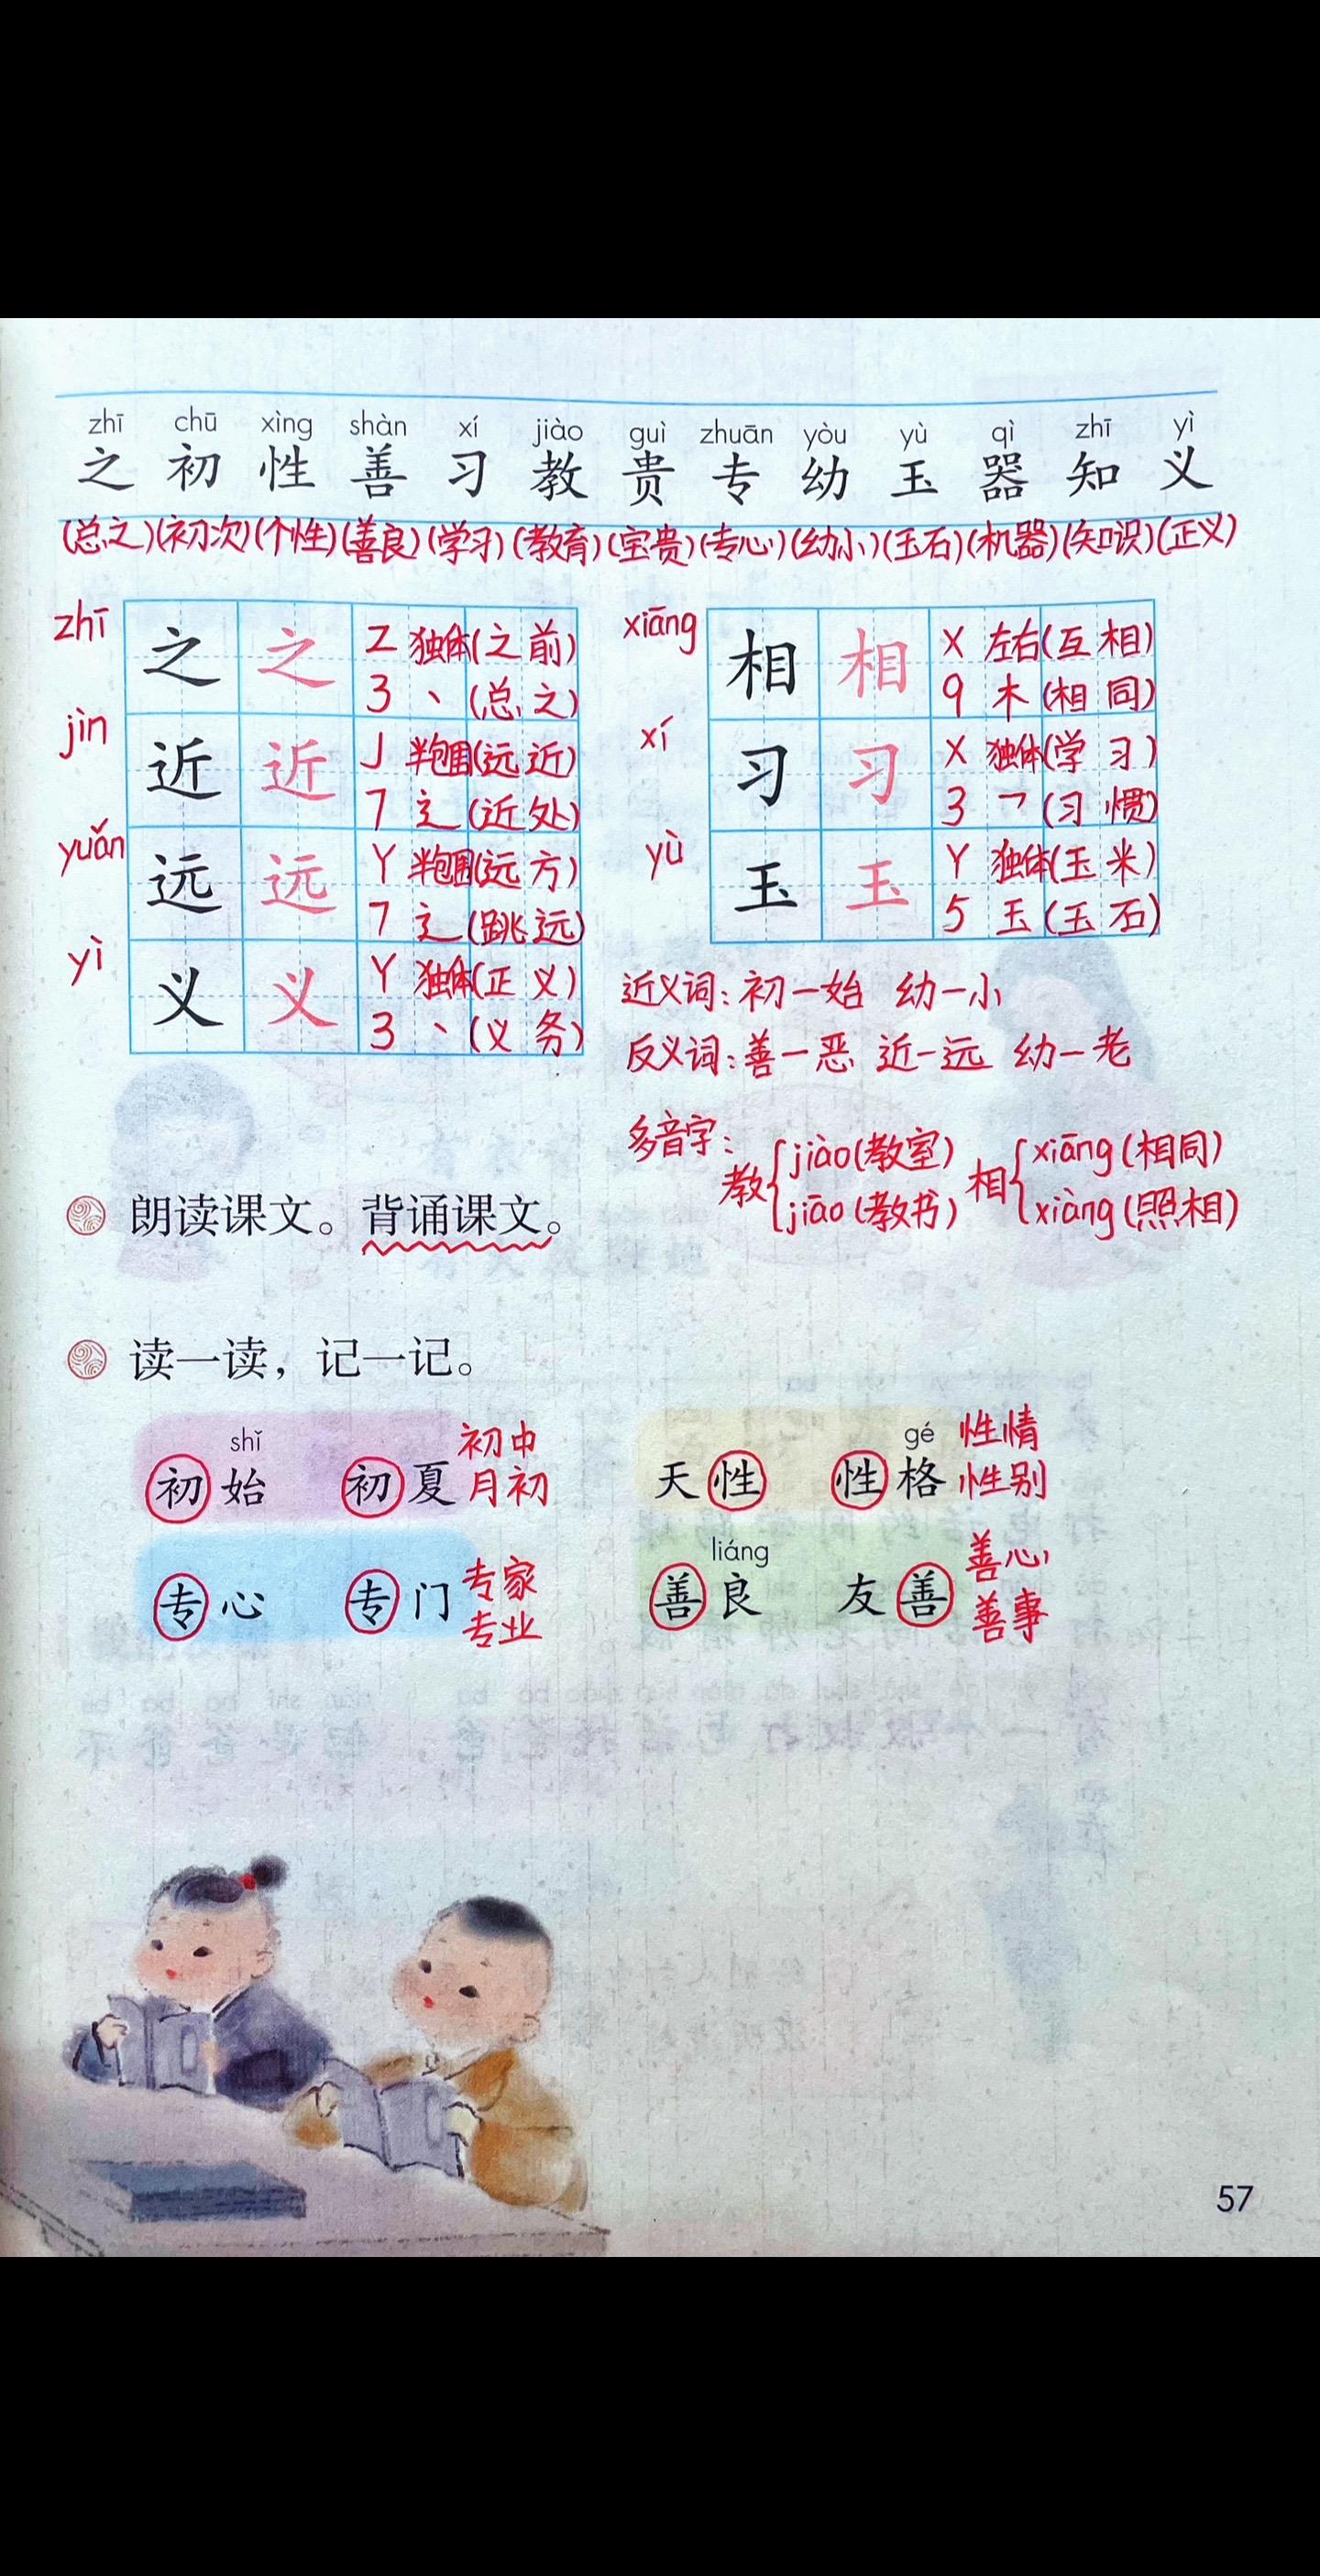 zhī chū xìng shàn xí jiào guì zhuān yòu yù qì zhī yì
之 初 性 善 习 教 贵 专 幼 玉 器 知 义
(总之)(初次)(个性)(善良)(学习)(教育)(宝贵)(专心)(幼小)(玉石)(机器)(知识)(正义)
zhī 之 之 Z 独体(之前)
3 丶 (总之)
jìn 近 近 J 半包围(远近)
7 辶 (近处)
yuǎn 远 远 Y 半包围(远方)
7 辶 (跳远)
yì 义 义 Y 独体(正义)
3 丶 (义务)
xiāng 相 相 X 左右(互相)
9 木 (相同)
xí 习 习 X 独体(学习)
3 乛 (习惯)
yù 玉 玉 Y 独体(玉米)
5 玉 (玉石)
近义词:初—始 幼—小
反义词:善—恶 近—远 幼—老
多音字:
教{jiào(教室) 相{xiāng(相同)
jiāo(教书) xiàng(照相)
朗读课文。背诵课文。
读一读，记一记。
shǐ 初中 gé 性情
初始 初夏 月初 天性 性格 性别
liáng 专家 善心
专心 专门 专业 善良 友善 善事
57